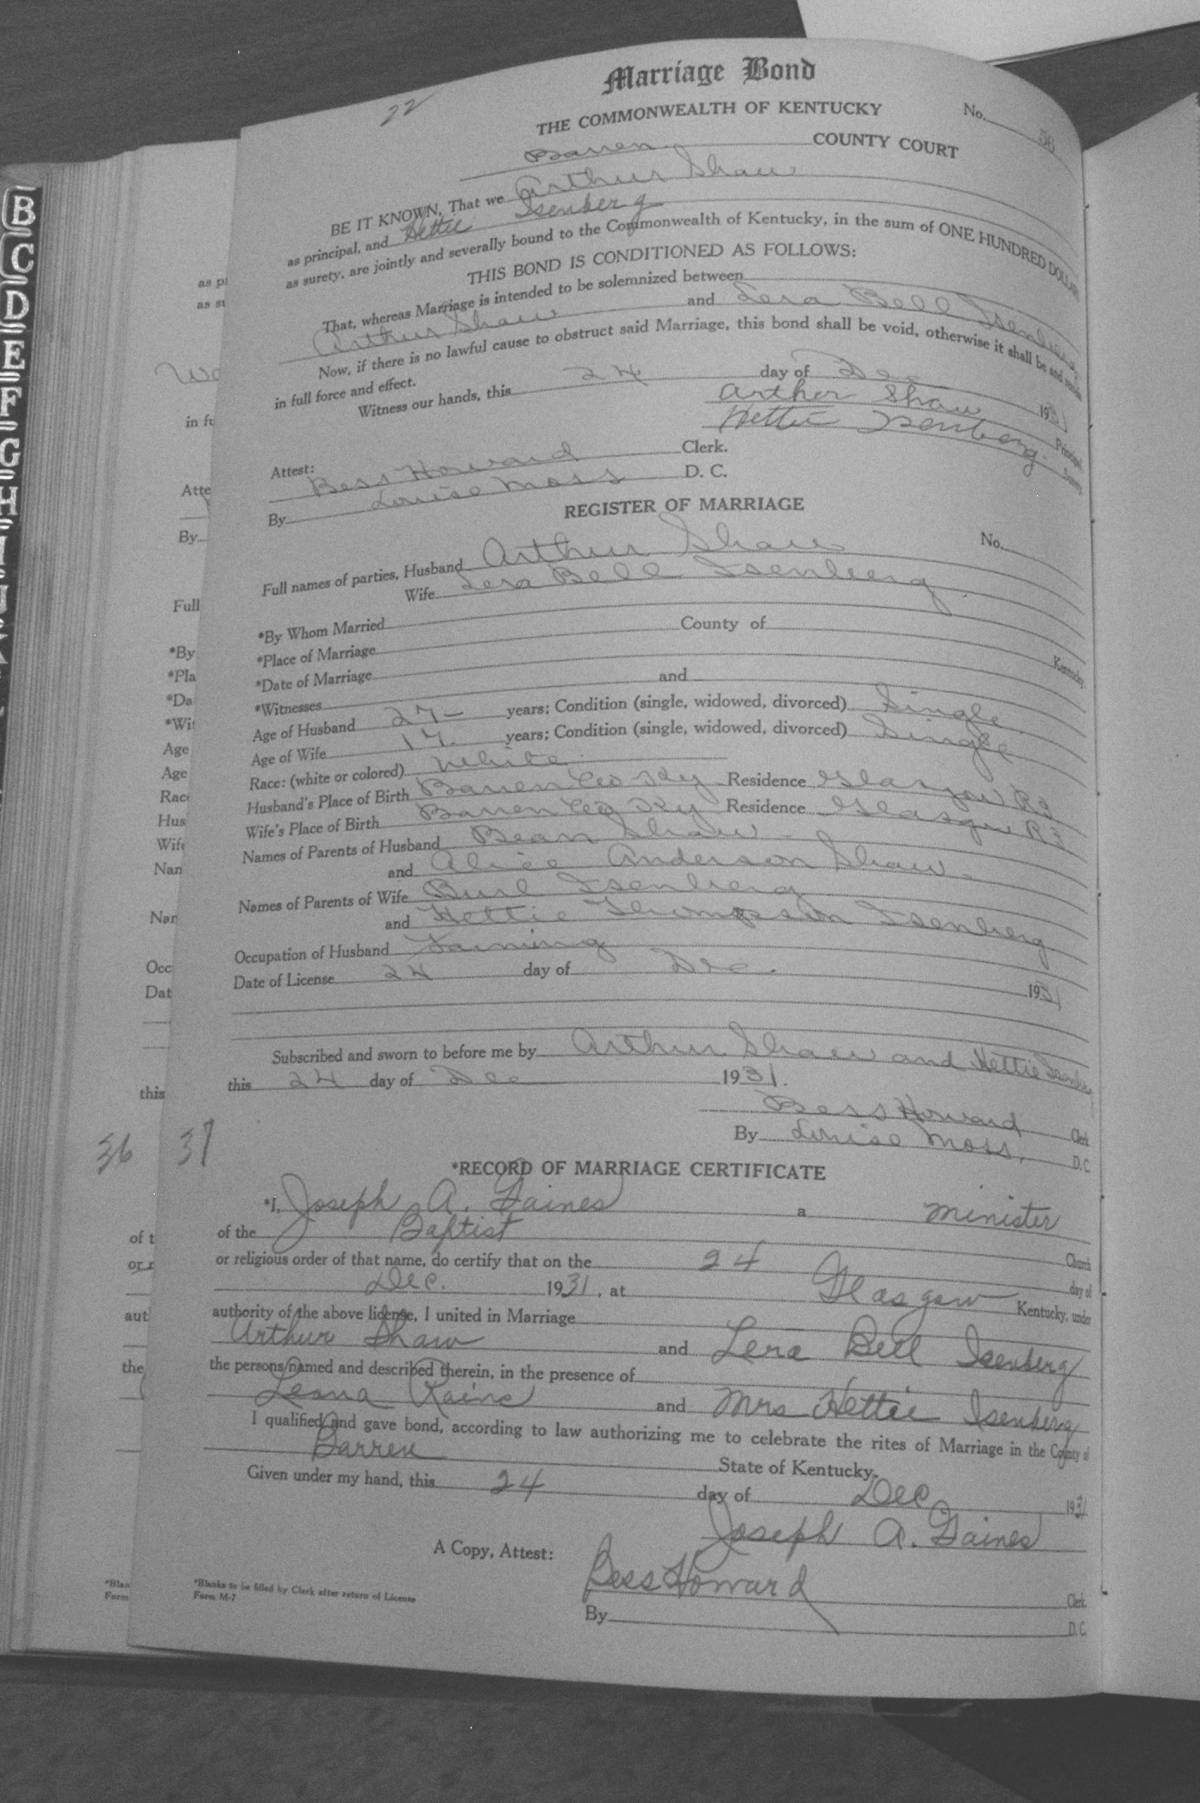 Marriage Bond
22
THE COMMONWEALTH OF KENTUCKY No. 56
Barren COUNTY COURT
BE IT KNOWN, That we Arthur Shaw
as principal, and Hettie Isenberg
as surety, are jointly and severally bound to the Commonwealth of Kentucky, in the sum of ONE HUNDRED DOLLARS
THIS BOND IS CONDITIONED AS FOLLOWS:
That, whereas Marriage is intended to be solemnized between
Arthur Shaw and Lera Bell Isenberg
Now, if there is no lawful cause to obstruct said Marriage, this bond shall be void, otherwise it shall be and remain
in full force and effect.
Witness our hands, this 24 day of Dec 1931
Arthor Shaw Principal.
Hettie Isenberg. Surety
Attest:
Bess Howard Clerk.
By Louise Moss D. C.
REGISTER OF MARRIAGE
No.
Full names of parties, Husband Arthur Shaw
Wife Lera Bell Isenberg.
*By Whom Married
*Place of Marriage County of Kentucky
*Date of Marriage
*Witnesses and
Age of Husband 27 years; Condition (single, widowed, divorced) Single
Age of Wife 17 years; Condition (single, widowed, divorced) Single
Race: (white or colored) White
Husband's Place of Birth Barren Co Ky Residence Glasgow R3
Wife's Place of Birth Barren Co Ky Residence Glasgow R3
Names of Parents of Husband Bean Shaw
and Alice Anderson Shaw.
Names of Parents of Wife Burl Isenberg
and Hettie Thompson Isenberg
Occupation of Husband Farming
Date of License 24 day of Dec. 1931
Subscribed and sworn to before me by Arthur Shaw and Hettie Isenberg
this 24 day of Dec 1931.
Bess Howard Clerk
By Louise Moss, D. C.
36 37
*RECORD OF MARRIAGE CERTIFICATE
*I, Joseph A. Gaines a minister
of the Baptist Church
or religious order of that name, do certify that on the 24 day of
Dec. 1931, at Glasgow Kentucky, under
authority of the above license, I united in Marriage
Arthur Shaw and Lera Bell Isenberg
the persons named and described therein, in the presence of
Leana Raine and Mrs Hettie Isenberg
I qualified and gave bond, according to law authorizing me to celebrate the rites of Marriage in the County of
Barren State of Kentucky.
Given under my hand, this 24 day of Dec 1931
Joseph A. Gaines
A Copy, Attest:
Bess Howard Clerk
By D. C.
*Blanks to be filled by Clerk after return of License
Form M-7
B
C
D
E
F
G
H